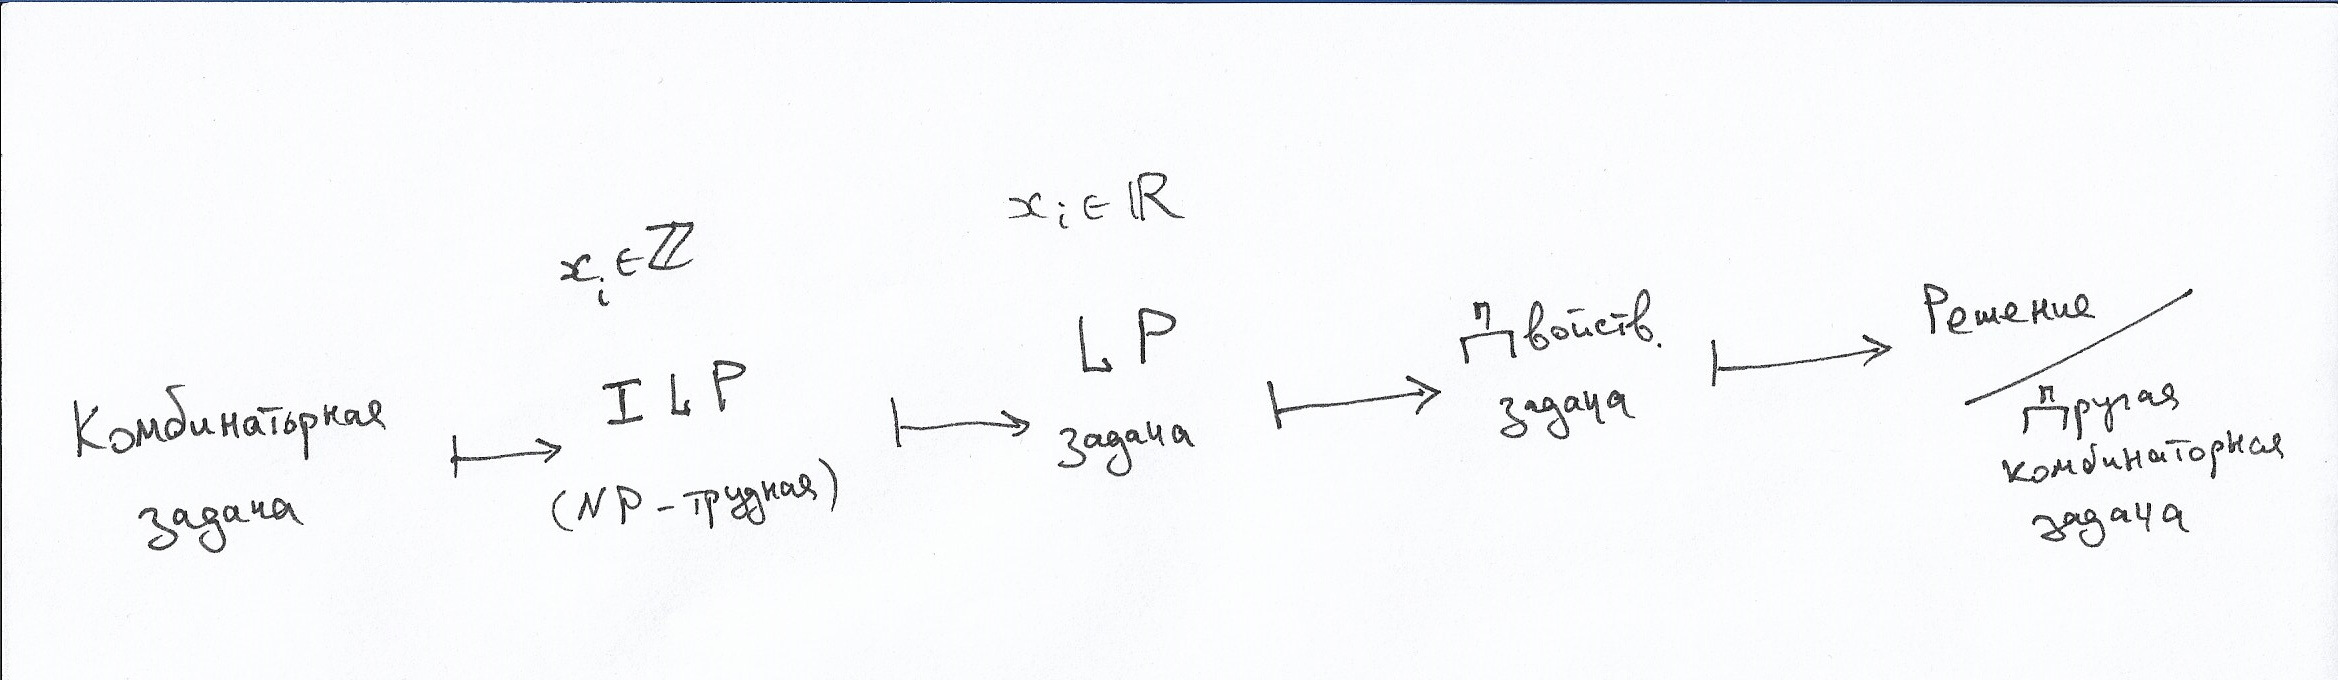 Комбинаторная
задача
x_i ∈ ℤ
ILP
(NP-трудная)
x_i ∈ ℝ
LP
задача
Двойств.
задача
Решение
Другая
комбинаторная
задача